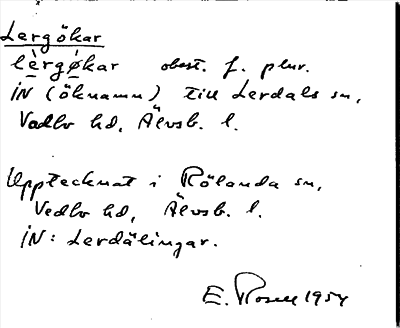 Lergökar
lèrgø̀kar obest. f. plur.
iN (öknamn) till Lerdals sn,
Vedbo hd, Älvsb. l.
Upptecknat i Rölanda sn,
Vedbo hd, Älvsb. l.
iN: Lerdälingar.
E. Rosell 1954